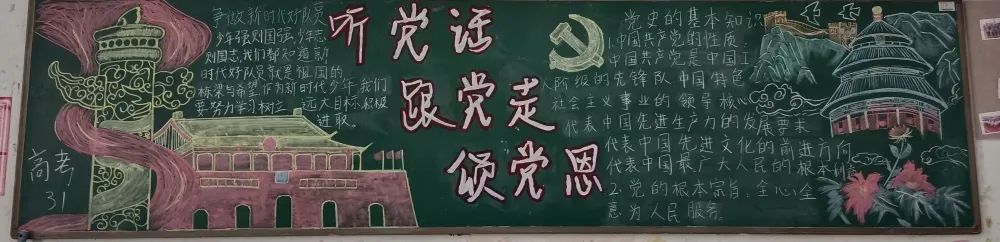 争做新时代好队员
少年强则国强,少年志
则国志,我们都知道新
时代好队员就是祖国的
栋梁与希望作为新时代少年我们
要努力学习树立远大目标积极
进取。
听党话
跟党走
颂党恩
高考
31
党史的基本知识
1.中国共产党的性质:
中国共产党是中国工
人阶级的先锋队中国特色
社会主义事业的领导核心
代表中国先进生产力的发展要求
代表中国先进文化的前进方向
代表中国最广大人民的根本利益
2.党的根本宗旨:全心全
意为人民服务。